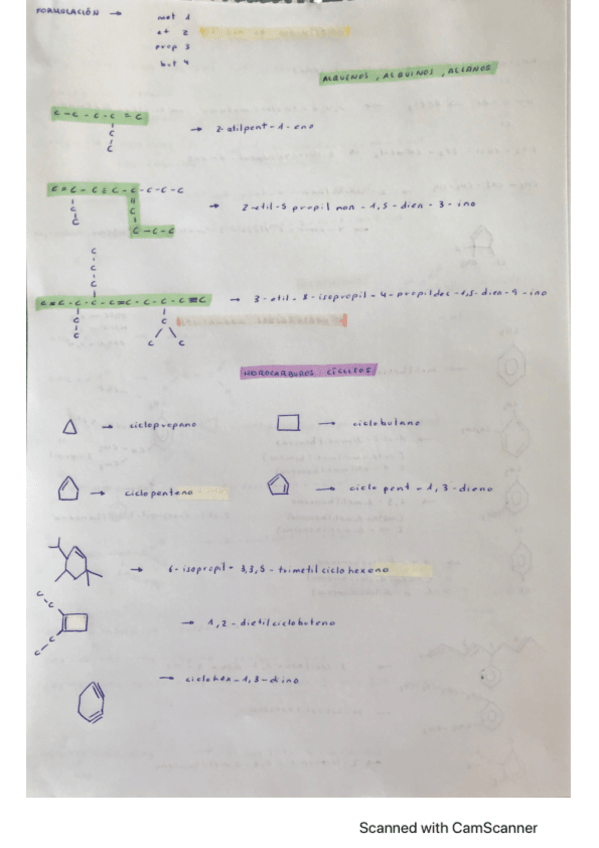 FORMULACIÓN → met 1
et 2
prop 3
but 4
ALQUENOS, ALQUINOS, ALCANOS
C - C - C - C = C
C
C
→ 2-etilpent-1-eno
C - C - C - C
C
C
C - C - C
→ 2-etil-5 propil non-1,5-dien-3-ino
C
C
C
→ 3-etil-8-isopropil-4-propildec-1,5-dien-9-ino
C
C
C
C C
HIDROCARBUROS CÍCLICOS
→ ciclopropano
→ ciclobutano
→ ciclopenteno
→ ciclo pent-1,3-dieno
→ 6-isopropil-3,3,5-trimetil ciclohexeno
C
C
C
C
→ 1,2-dietilciclobuteno
→ ciclohex-1,3-diino
Scanned with CamScanner